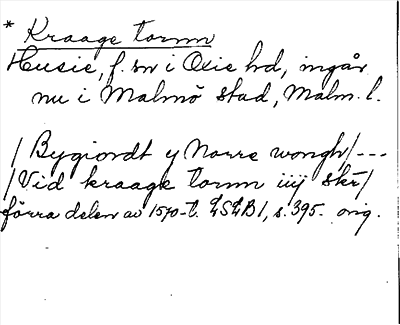 * Kraage tornn
Husie, f. sn i Oxie hd, ingår
nu i Malmö stad, Malm. l.
/ Bygiordt y Norre wongh/---
/Vid kraage tornn iiij skr/
förra delen av 1570-t. LSLB1, s. 395. orig.